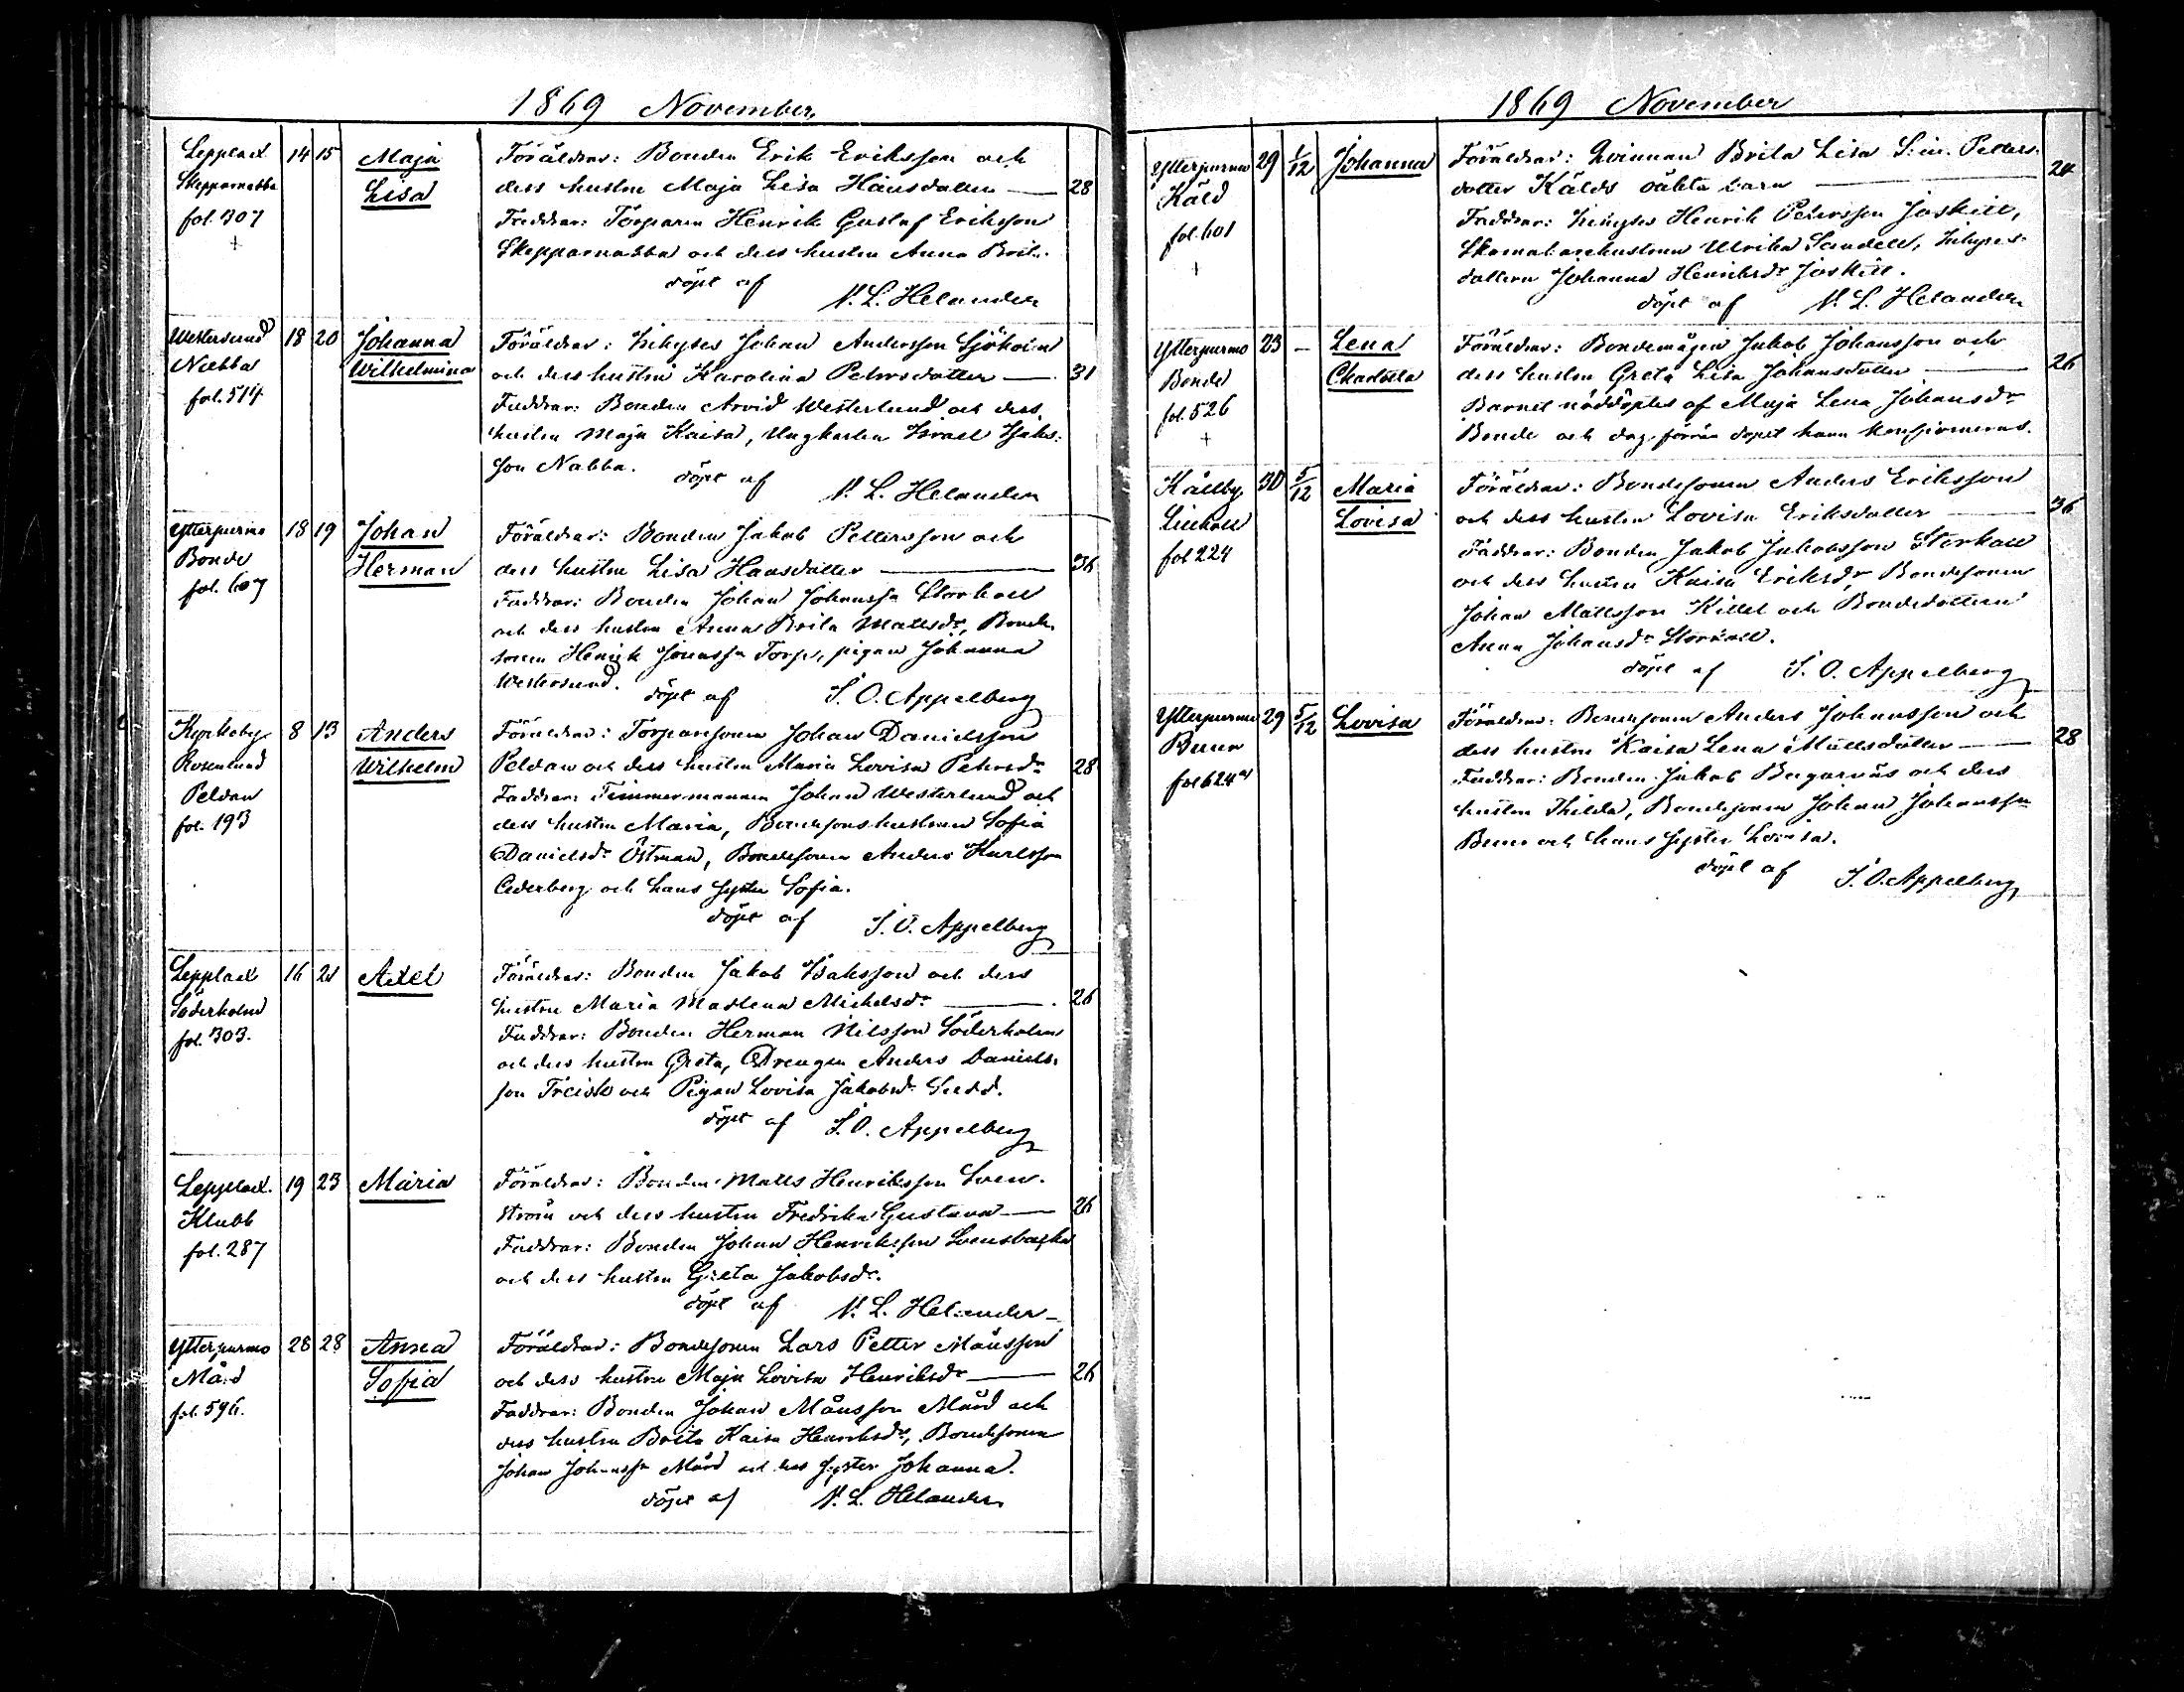 1869 November
Lepplax 14 15 Maja Föräldrar: Bonden Erik Eriksson och
Skepparnabba Lisa dess hustru Maja Lisa Hansdotter — 28
fol. 307 Faddrar: Torparen Henrik Gustaf Eriksson
+ Skepparnabba och dess hustru Anna Brita.
döpt af N. L. Helander
Westersund 18 20 Johanna Föräldrar: Inhyses Johan Andersson Sjöholm
Nabba Wilhelmina och dess hustru Karolina Petersdotter — 31
fol. 514 Faddrar: Bonden Arvid Westerlund och dess
hustru Maja Kaisa, Ungkarlen Israel Isaks-
son Nabba. döpt af N. L. Helander
Ytterpurmo 18 19 Johan Föräldrar: Bonden Jakob Pettersson och
Bonde Herman dess hustru Lisa Hansdotter — 36
fol. 607 Faddrar: Bonden Johan Johanss. Storkall
och dess hustru Anna Brita Mattsdr, Bonde-
sonen Henrik Jonass. Torp, pigan Johanna
Westersund. döpt af S. O. Appelberg
Kyrkoby 8 13 Anders Föräldrar: Torparsonen Johan Danielsson
Rosenlund Wilhelm Peldan och dess hustru Maria Lovisa Petersdr 28
Peldan Faddrar: Timmermannen Johan Westerlund och
fol. 193 dess hustru Maria, Bondsonshustrun Sofia
Danielsdr Östman, Bondesonen Anders Karlsson
Cederberg och hans syster Sofia.
döpt af S. O. Appelberg
Lepplax 16 21 Axel Föräldrar: Bonden Jakob Isaksson och dess
Söderholm hustru Maria Madlena Michelsdr — 26
fol. 303. Faddrar: Bonden Herman Nilsson Söderholm
och dess hustru Greta, Drengen Anders Daniels-
son och Pigan Lovisa Jakobsdr Sudd.
döpt af S. O. Appelberg
Lepplax. 19 23 Maria Föräldrar: Bonden Matts Henriksson Swen-
Klubb ström och dess hustru Fredrika Gustava — 26
fol. 287 Faddrar: Bonden Johan Henriksson Svensbacka
och dess hustru Greta Jakobsdr.
döpt af N. L. Helander
Ytterpurmo 28 28 Anna Föräldrar: Bondesonen Lars Petter Månsson
Mård Sofia och dess hustru Maja Lovisa Henriksdr — 26
fol. 596. Faddrar: Bonden Johan Månsson Mård och
dess hustru Brita Kaisa Henriksdr, Bondesonen
Johan Johanss. Mård och hans syster Johanna.
döpt af N. L. Helander
1869 November
Ytterpurmo 29 1/12 Johanna Föräldrar: Qvinnan Brita Lisa S:in. Petters- 24
Käld dotter Kälds oäkta barn —
fol. 601 Faddrar: Inhyses Henrik Petersson Joskitt,
+ Skomakarehustrun Ulrika Sandell, Inhyses-
dottern Johanna Henriksdr Joskitt.
döpt af N. L. Helander
Ytterpurmo 23 — Lena Föräldrar: Bondemågen Jakob Johansson och
Bonde Charlotta dess hustru Greta Lisa Johansdotter — 26
fol. 526 Barnet nöddöptes af Maja Lena Johansdr
+ Bonde och dog förrän dopet hann konfirmeras.
Kållby 30 5/12 Maria Föräldrar: Bondesonen Anders Eriksson
Lillkåll Lovisa och dess hustru Lovisa Eriksdotter — 36
fol 224 Faddrar: Bonden Jakob Jakobsson Storkall
och dess hustru Kaisa Eriksdr, Bondesonen
Johan Mattsson Kittel och Bondedottern
Anna Johansdr Storkall.
döpt af S. O. Appelberg
Ytterpurmo 29 5/12 Lovisa Föräldrar: Bondesonen Anders Johansson och
dess hustru Kaisa Lena Mattsdotter — 28
fol 624 Faddrar: Bonden Jakob och dess
hustru Thilda, Bondesonen Johan Johansson
och hans syster Lovisa.
döpt af S. O. Appelberg